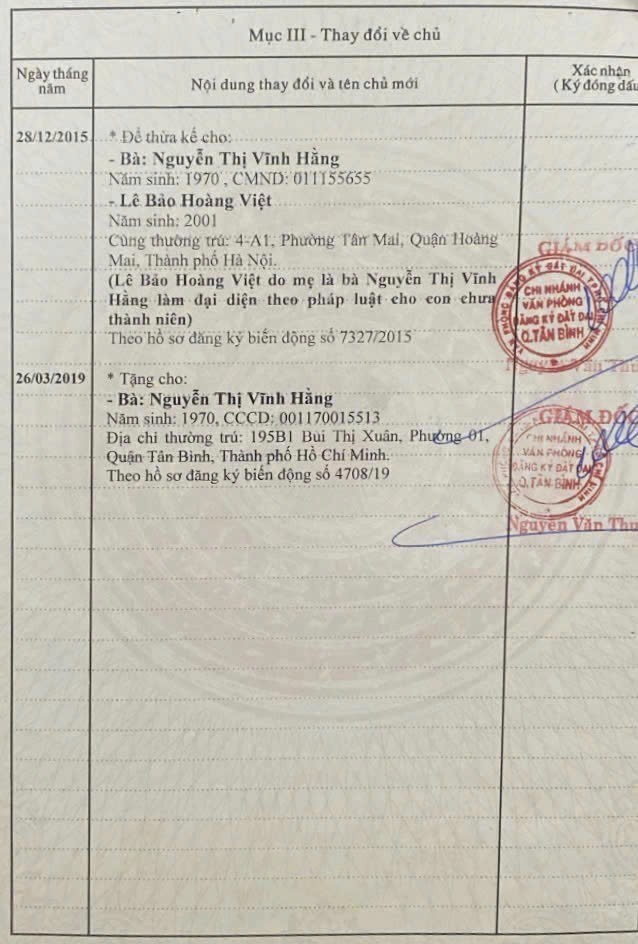 Mục III - Thay đổi về chủ
Ngày tháng năm
Nội dung thay đổi và tên chủ mới
Xác nhận
( Ký đóng dấu
28/12/2015
* Để thừa kế cho:
- Bà: Nguyễn Thị Vĩnh Hằng
Năm sinh: 1970 , CMND: 011155655
- Lê Bảo Hoàng Việt
Năm sinh: 2001
Cùng thường trú: 4-A1, Phường Tân Mai, Quận Hoàng
Mai, Thành phố Hà Nội.
(Lê Bảo Hoàng Việt do mẹ là bà Nguyễn Thị Vĩnh
Hằng làm đại diện theo pháp luật cho con chưa
thành niên)
Theo hồ sơ đăng ký biến động số 7327/2015
GIÁM ĐỐC
CHI NHÁNH
VĂN PHÒNG
ĐĂNG KÝ ĐẤT ĐAI
Q.TÂN BÌNH
Nguyễn Văn Thu
26/03/2019
* Tặng cho:
- Bà: Nguyễn Thị Vĩnh Hằng
Năm sinh: 1970, CCCD: 001170015513
Địa chỉ thường trú: 195B1 Bùi Thị Xuân, Phường 01,
Quận Tân Bình, Thành phố Hồ Chí Minh.
Theo hồ sơ đăng ký biến động số 4708/19
GIÁM ĐỐC
CHI NHÁNH
VĂN PHÒNG
ĐĂNG KÝ ĐẤT ĐAI
Q.TÂN BÌNH
Nguyễn Văn Thu